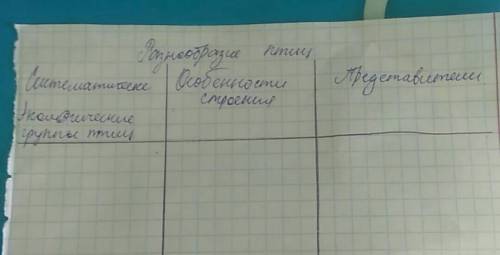 Разнообразие птиц
Систематические
Экологические
группы птиц
Особенности
строения
Представители